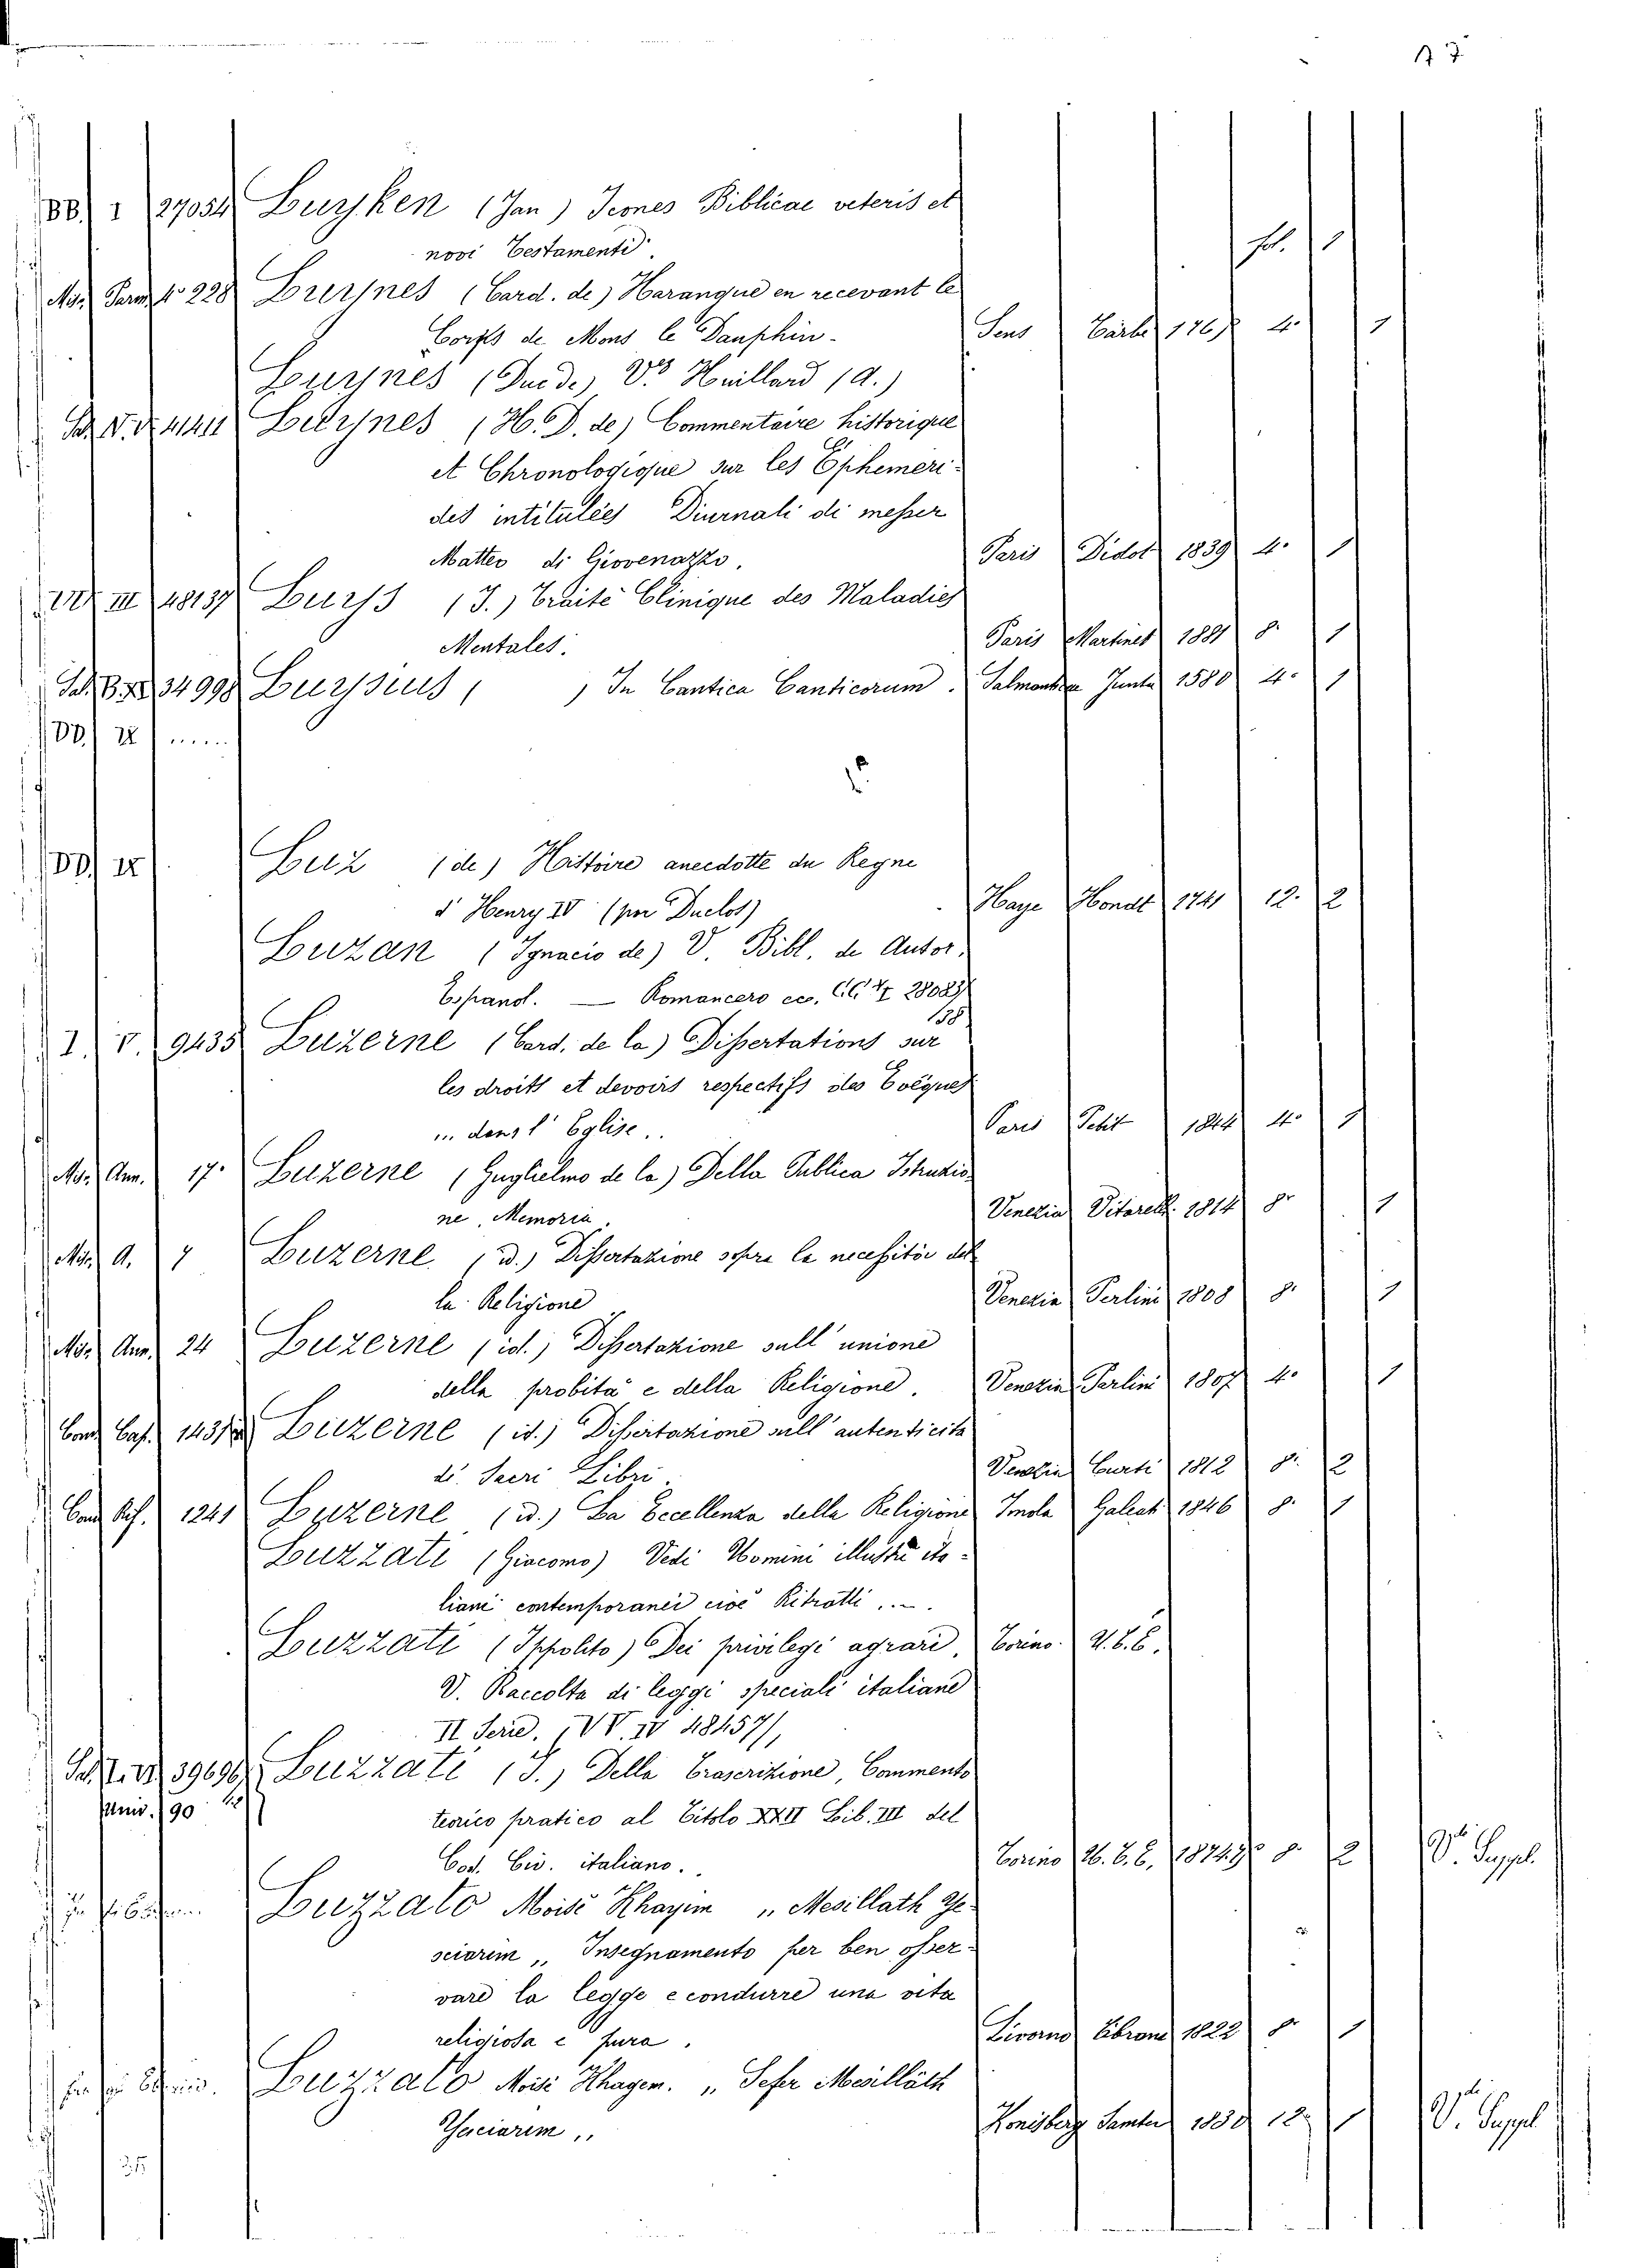 17
BB. I 27054 Luyken (Jan) Icones Biblicae veteris et
novi Testamenti. fol. 1
Mis. Parm. 4° 228 Luynes (Card. de) Harangue en recevant le
Corps de Mons le Dauphin. Sens Tarbe 1767 4. 1
Luynes (Duc de) V. Huillard (A.)
41411 Luynes (H. D. de) Commentaire historique
et Chronologique sur les Ephemeri-
des intitulées Diurnali di messer
Matteo di Giovenazzo. Paris Didot 1839 4. 1
III 48137 Luys (J.) Traité Clinique des Maladies
Mentales. Paris Martinet 1881 8. 1
34998 Luysius ( ) In Cantica Canticorum. Salmanticae Junta 1580 4. 1
DD. IX ......
DD. IX Luz (de) Histoire anecdotte du Regne
d' Henry IV (par Duclos) Haye Hondt 1741 12. 2
Luzan (Ignacio de) V. Bibl. de Autor.
Espanol. — Romancero ecc. CC. 28089/
138
I. V. 9435 Luzerne (Card. de la) Dissertations sur
les droits et devoirs respectifs des Evêques
... dans l' Eglise.. Paris Petit 1844 4. 1
Mis. Ann. 17. Luzerne (Guglielmo de la) Della Publica Istruzio-
ne, Memoria. Venezia Vitarelli 1814 8. 1
Mis. A. 7 Luzerne (id.) Dissertazione sopra la necessità del-
la Religione Venezia Perlini 1808 8. 1
Mis. Ann. 24 Luzerne (id.) Dissertazione sull' unione
della probità e della Religione. Venezia Perlini 1807 4. 1
Cons. Cap. 1431 Luzerne (id.) Dissertazione sull' autenticita
di Sacri Libri. Venezia Curti 1812 8. 2
1241 Luzerne (id.) La Eccellenza della Religione Imola Galeati 1846 8. 1
Luzzati (Giacomo) Vedi Uomini illustri ita-
liani contemporanei cioè Ritratti ....
Luzzati (Ippolito) Dei privilegi agrari, Torino. U. T. E.
V. Raccolta di leggi speciali italiane
II Serie. (VV. IV 48457),
39696 Luzzati (I.) Della Trascrizione, Commento
90 teorico pratico al Titolo XXII Lib. III del
Cod. Civ. italiano. Torino U. T. E. 8. 2 V. Suppl.
Luzzato Moisè Khayim „ Mesillath Ye-
sciarim „ Insegnamento per ben osser-
vare la legge e condurre una vita
religiosa e pura. Livorno 1822 8. 1
Luzzato Moisè Khagen. „ Sefer Mesillàth
Yesciarim „ Konisberg Samter 12. 1 V. Suppl
25